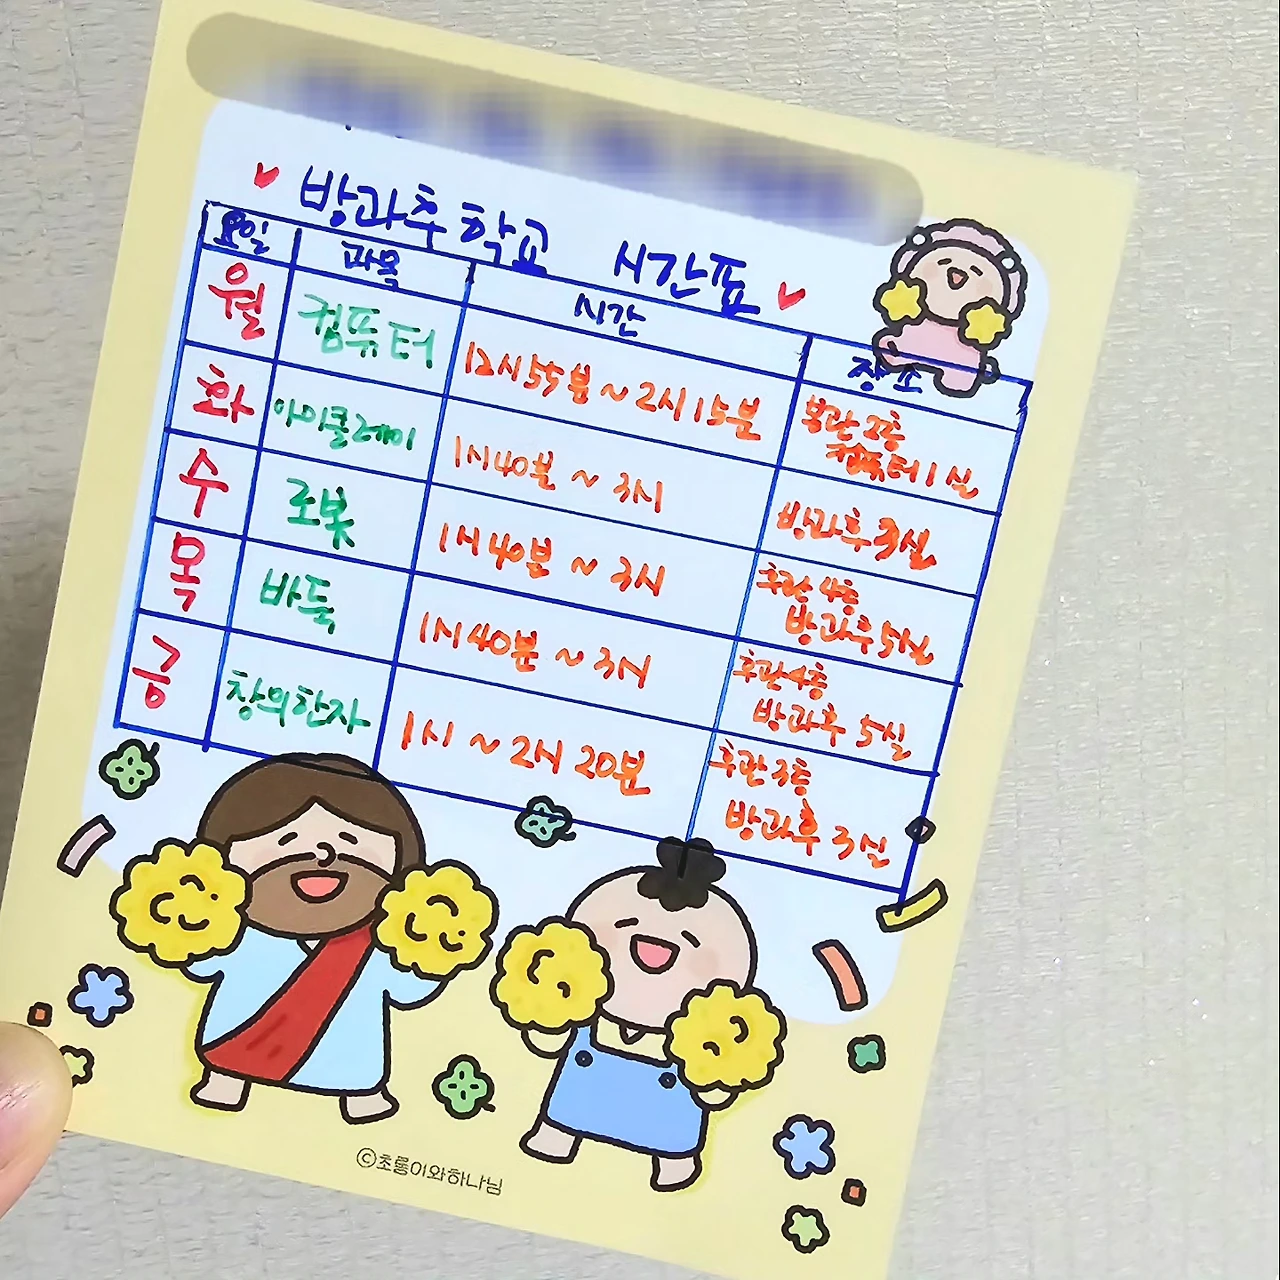 방과후 학교 시간표
요일 과목 시간 장소
월 컴퓨터 12시55분 ~ 2시15분 본관 2층
컴퓨터 1실
화 아이클레이 1시40분 ~ 3시 방과후 3실
수 로봇 1시40분 ~ 3시 후관 4층
방과후 5실
목 바둑 1시40분 ~ 3시 후관 4층
방과후 5실
금 창의한자 1시 ~ 2시 20분 후관 3층
방과후 3실
©초롱이와하나님